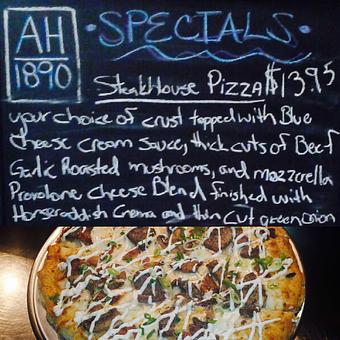 AH
1890
• SPECIALS •
SteakHouse Pizza $13.95
your choice of crust topped with Blue
Cheese Cream Sauce, thick cuts of Beef
Garlic Roasted mushrooms, and mozzerella
Provolone Cheese Blend finished with
Horseraddish Crema and thin cut green onion